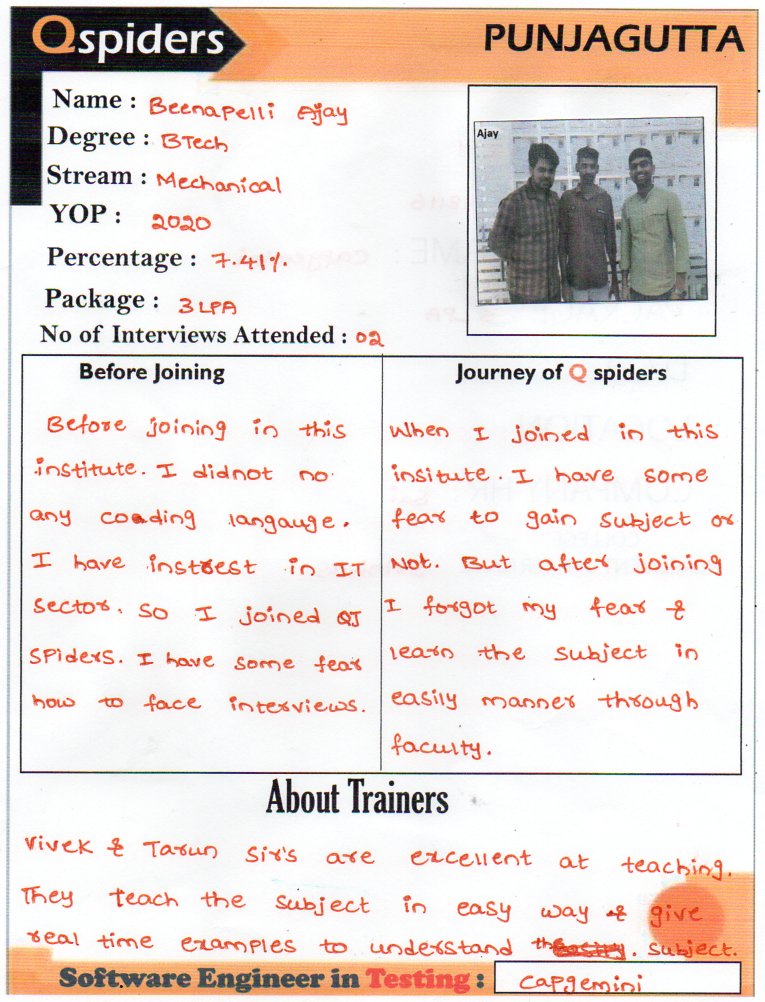 Qspiders
PUNJAGUTTA
Name : Beenapelli Ajay
Degree : BTech
Stream : Mechanical
YOP : 2020
Percentage : 7.41%.
Package : 3 LPA
No of Interviews Attended : 02
Ajay
Before Joining
Before joining in this
institute. I didnot no
any coading langauge.
I have instrest in IT
sector. So I joined QJ
Spiders. I have some fear
how to face interviews.
Journey of Q spiders
When I joined in this
insitute. I have some
fear to gain subject or
Not. But after joining
I forgot my fear &
learn the subject in
easily manner through
faculty.
About Trainers
Vivek & Tarun Sir's are excellent at teaching.
They teach the subject in easy way & give
real time examples to understand the. subject.
Software Engineer in Testing : Capgemini